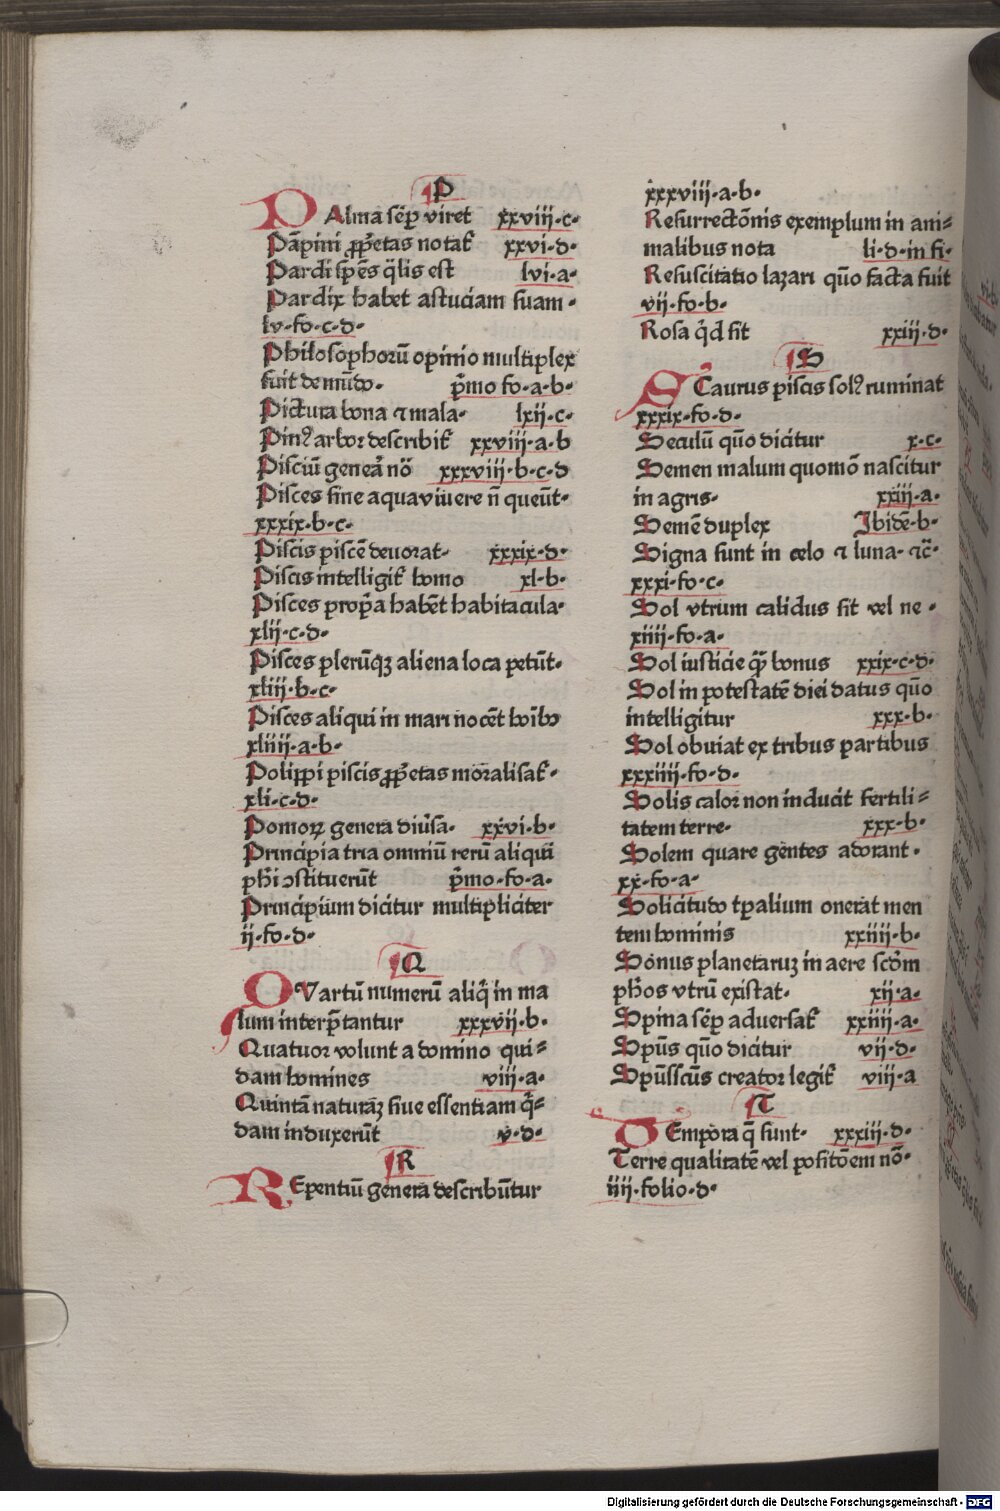 P
PAlma sēp viret xxviii·c·
Pāpini ꝓpͥetas notat᷑ xxvi·d·
Pardi spēs q̄lis est lvi·a·
Pardix habet astuciam suam·
lv·fo·c·d·
Philosophorū opinio multiplex
fuit de mūdo· pͥmo fo·a·b·
Pictura bona ⁊ mala· lxii·c·
Pinꝰ arbor describit᷑ xxviii·a·b
Pisciū genera nō xxxviii·b·c·d
Pisces sine aqua viuere n̄ queūt·
xxxix·b·c·
Piscis piscē deuorat· xxxix·d·
Piscis intelligit᷑ homo xl·b·
Pisces propͥa habēt habitacula·
xlii·c·d·
Pisces plerūqꝫ aliena loca petūt·
xliii·b·c·
Pisces aliqui in mari nocēt hoībꝰ
xliiii·a·b·
Polippi piscis ꝓpͥetas moralisat᷑·
xli·c·d·
Pomoꝝ genera diūsa· xxvi·b·
Principia tria omniū rerū aliqui
phī ɔstituerūt pͥmo·fo·a·
Principium dicitur multipliciter
ii·fo·d·
Q
QVartū numerū aliq̄ in ma
lum interp̄tantur xxxvii·b·
Quatuor volunt a domino qui⸗
dam homines viii·a·
Quintā naturaꝫ siue essentiam q̄⸗
dam induxerūt v·d·
R
REpentiū genera describūtur
xxxviii·a·b·
Resurrectōnis exemplum in ani⸗
malibus nota li·d·in fi·
Resuscitatio lazari quō facta fuit
vii·fo·b·
Rosa q̄d sit xxiii·d·
S
SCaurus piscis solꝰ ruminat
xxxix·fo·d·
Seculū quō dicitur x·c·
Semen malum quomō nascitur
in agris· xxiii·a·
Semē duplex Ibidē·b·
Signa sunt in celo ⁊ luna· ⁊c̄·
xxxi·fo·c·
Sol vtrum calidus sit vel ne·
xiiii·fo·a·
Sol iusticie q̄ꝫ bonus xxix·c·d·
Sol in potestatē diei datus quō
intelligitur xxx·b·
Sol obuiat ex tribus partibus
xxxiiii·fo·d·
Solis calor non inducit fertili⸗
tatem terre· xxx·b·
Solem quare gentes adorant·
xx·fo·a·
Solicitudo tꝑalium onerat men
tem hominis xxiiii·b·
Sonus planetaruꝫ in aere scdm̄
phōs vtrū existat· xii·a·
Spina sēp adversat᷑ xxiiii·a·
Spūs quō dicitur vii·d·
Spūsscūs creator legit᷑ viii·a
T
TEmpora q̄ sunt· xxxiii·d·
Terre qualitatē vel positōem nō·
iiii·folio·d·
Digitalisierung gefördert durch die Deutsche Forschungsgemeinschaft - DFG